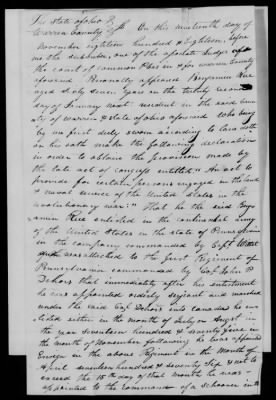 The State of Ohio }
Warren County } SS. On this nineteenth day of
November eighteen hundred & Eighteen, before
me the subscriber, one of the associate Judges of
the court of common Pleas in & for warren County
aforesaid Personally appeared Benjamin Rue
aged sixty seven years on the twenty second
day of January next resident in the said coun-
ty of warren & state of ohio aforesaid who being
by me first duly sworn according to law doth
on his oath make the following declaration
in order to obtain the provision made by
the late act of congress entitled "An act to
provide for certain persons engaged in the land
& naval service of the United States in the
revolutionary war:" That he the said Ben-
jamin Rue enlisted in the continental army
of the United States in the state of Pennsylvania
in the company commanded by Capt
was attached to the first Regiment of
Pennsylvania commanded by Col. John P
Dehors that immediately after his enlistment
he was appointed orderly serjeant and marched
under the said Col Dehors into Canada he en-
listed either in the month of July or August in
the year seventeen hundred & seventy five in
the month of November following he was appointed
Ensign in the above Regiment in the Month of
April seventeen hundred & seventy six & not to
exceed the 15th day of that month he was
appointed to the command of a schooner in